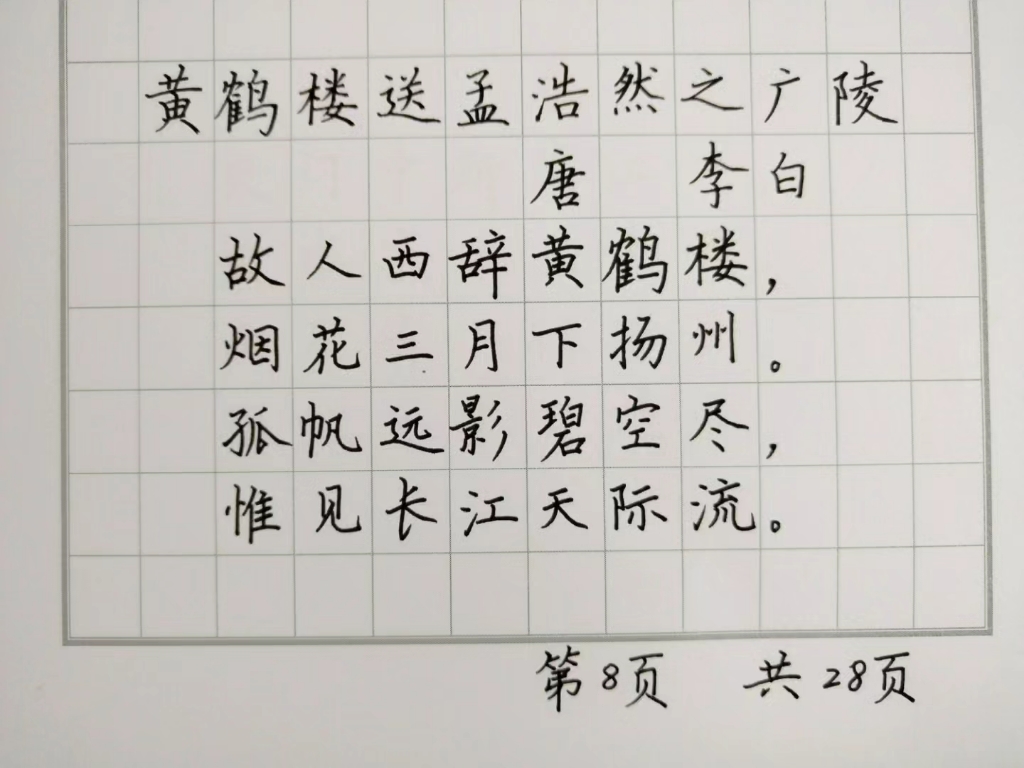 黄鹤楼送孟浩然之广陵
唐 李白
故人西辞黄鹤楼，
烟花三月下扬州。
孤帆远影碧空尽，
惟见长江天际流。
第8页 共28页